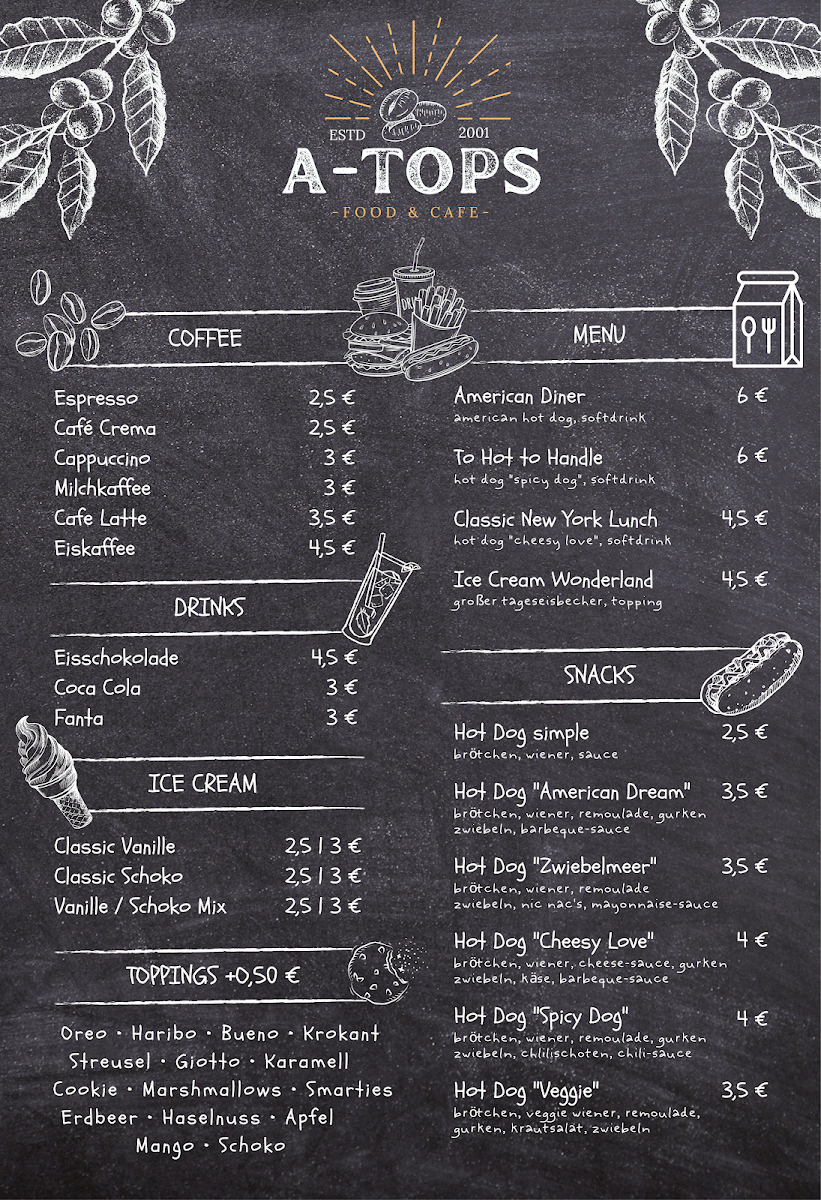 ESTD 2001
A-TOPS
~FOOD & CAFE~
COFFEE
Espresso 2,5 €
Café Crema 2,5 €
Cappuccino 3 €
Milchkaffee 3 €
Cafe Latte 3,5 €
Eiskaffee 4,5 €
DRINKS
Eisschokolade 4,5 €
Coca Cola 3 €
Fanta 3 €
ICE CREAM
Classic Vanille 2,5 | 3 €
Classic Schoko 2,5 | 3 €
Vanille / Schoko Mix 2,5 | 3 €
TOPPINGS +0,50 €
Oreo • Haribo • Bueno • Krokant
Streusel • Giotto • Karamell
Cookie • Marshmallows • Smarties
Erdbeer • Haselnuss • Apfel
Mango • Schoko
MENU
American Diner 6 €
american hot dog, softdrink
To Hot to Handle 6 €
hot dog "spicy dog", softdrink
Classic New York Lunch 4,5 €
hot dog "cheesy love", softdrink
Ice Cream Wonderland 4,5 €
großer tageseisbecher, topping
SNACKS
Hot Dog simple 2,5 €
brötchen, wiener, sauce
Hot Dog "American Dream" 3,5 €
brötchen, wiener, remoulade, gurken
zwiebeln, barbeque-sauce
Hot Dog "Zwiebelmeer" 3,5 €
brötchen, wiener, remoulade
zwiebeln, nic nac's, mayonnaise-sauce
Hot Dog "Cheesy Love" 4 €
brötchen, wiener, cheese-sauce, gurken
zwiebeln, käse, barbeque-sauce
Hot Dog "Spicy Dog" 4 €
brötchen, wiener, remoulade, gurken
zwiebeln, chlilischoten, chili-sauce
Hot Dog "Veggie" 3,5 €
brötchen, veggie wiener, remoulade,
gurken, krautsalat, zwiebeln